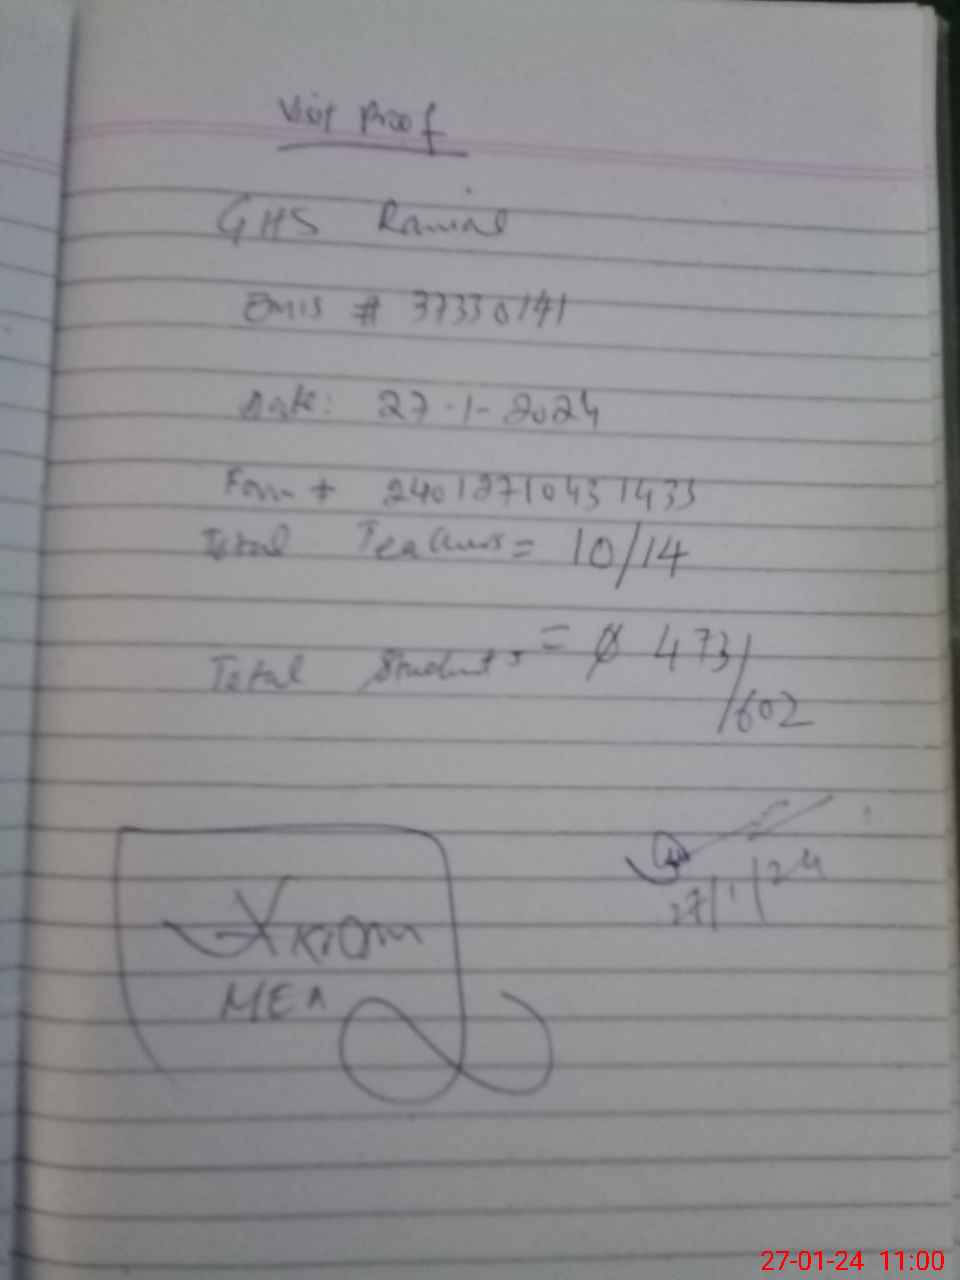 Visit Proof
GHS Ramial
Emis # 37330141
Date: 27-1-2024
Form # 2401271043 1433
Total Teachers = 10/14
Total Students = 473/
/602
27/1/24
Akram
MEA
27-01-24 11:00